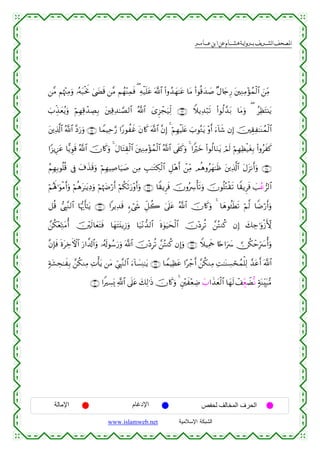 المصحف الشريف برواية هشام عن ابن عامر
مِّنَ ٱلْمُؤْمِنِينَ رِجَالٌ صَدَقُوا۟ مَا عَٰهَدُوا۟ ٱللَّهَ عَلَيْهِ ۖ فَمِنْهُم مَّن قَضَىٰ نَحْبَهُۥ وَمِنْهُم مَّن
يَنتَظِرُ ۖ وَمَا بَدَّلُوا۟ تَبْدِيلًا لِّيَجْزِىَ ٱللَّهُ ٱلصَّٰدِقِينَ بِصِدْقِهِمْ وَيُعَذِّبَ
ٱلْمُنَٰفِقِينَ إِن شَآءَ أَوْ يَتُوبَ عَلَيْهِمْ ۚ إِنَّ ٱللَّهَ كَانَ غَفُورًا رَّحِيمًا وَرَدَّ ٱللَّهُ ٱلَّذِينَ
كَفَرُوا۟ بِغَيْظِهِمْ لَمْ يَنَالُوا۟ خَيْرًا ۚ وَكَفَى ٱللَّهُ ٱلْمُؤْمِنِينَ ٱلْقِتَالَ ۚ وَكَانَ ٱللَّهُ قَوِيًّا عَزِيزًا
وَأَنزَلَ ٱلَّذِينَ ظَٰهَرُوهُم مِّنْ أَهْلِ ٱلْكِتَٰبِ مِن صَيَاصِيهِمْ وَقَذَفَ فِى قُلُوبِهِمُ
ٱلرُّعُبَ فَرِيقًا تَقْتُلُونَ وَتَأْسِرُونَ فَرِيقًا وَأَوْرَثَكُمْ أَرْضَهُمْ وَدِيَٰرَهُمْ وَأَمْوَٰلَهُمْ
وَأَرْضًا لَّمْ تَطَـُٔوهَا ۚ وَكَانَ ٱللَّهُ عَلَىٰ كُلِّ شَىْءٍ قَدِيرًا يَٰٓأَيُّهَا ٱلنَّبِىُّ قُل
لِّأَزْوَٰجِكَ إِن كُنتُنَّ تُرِدْنَ ٱلْحَيَوٰةَ ٱلدُّنْيَا وَزِينَتَهَا فَتَعَالَيْنَ أُمَتِّعْكُنَّ
وَأُسَرِّحْكُنَّ سَرَاحًا جَمِيلًا وَإِن كُنتُنَّ تُرِدْنَ ٱللَّهَ وَرَسُولَهُۥ وَٱلدَّارَ ٱلْءَاخِرَةَ فَإِنَّ
ٱللَّهَ أَعَدَّ لِلْمُحْسِنَٰتِ مِنكُنَّ أَجْرًا عَظِيمًا يَٰنِسَآءَ ٱلنَّبِىِّ مَن يَأْتِ مِنكُنَّ بِفَٰحِشَةٍ
مُّبَيِّنَةٍ نُضَعِّفْ لَهَا ٱلْعَذَابَ ضِعْفَيْنِ ۚ وَكَانَ ذَٰلِكَ عَلَى ٱللَّهِ يَسِيرًا
الحرف المخالف لحفص الإدغام الإمالة
الشبكة الإسلامية www.islamweb.net